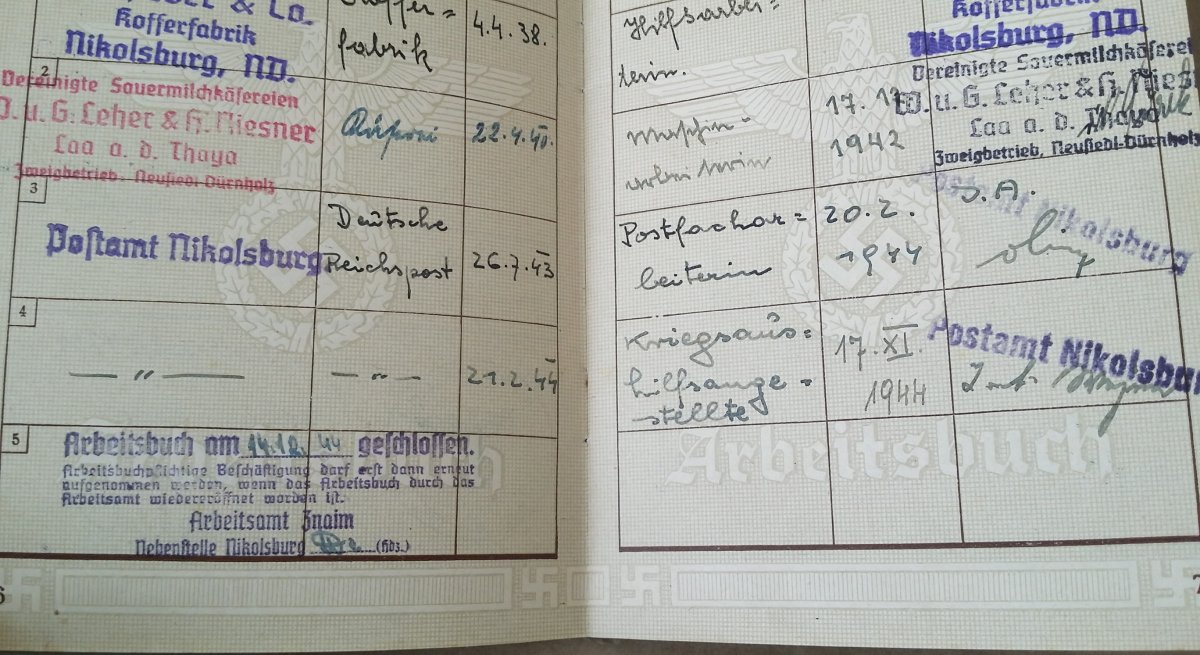 & Co.
Kofferfabrik
Nikolsburg, ND.
fabrik
4.4.38.
2
Vereinigte Sauermilchkäsereien
J. u. G. Leher & H. Niesner
Laa a. d. Thaya
Zweigbetrieb: Neusiedl-Dürnholz
22.4.40.
3
Postamt Nikolsburg
Deutsche
Reichspost
26.7.43
4
— „ —
— „ —
21.2.44
5
Arbeitsbuch am 14.12.44 geschlossen.
Arbeitsbuchpflichtige Beschäftigung darf erst dann erneut
aufgenommen werden, wenn das Arbeitsbuch durch das
Arbeitsamt wiedereröffnet worden ist.
Arbeitsamt Znaim
Nebenstelle Nikolsburg (Hdz.)
6
Hilfsarbei=
terin.
Kofferfabrik
Nikolsburg, ND.
Vereinigte Sauermilchkäsereien
J. u. G. Leher & H. Niesner
Laa a. d. Thaya
Zweigbetrieb, Neusiedl-Dürnholz
17.
1942
Postfachar=
beiterin
20.2.
1944
Postamt Nikolsburg
Kriegsaus=
hilfsange=
stellte
17.XI.
1944
Postamt Nikolsburg
Arbeitsbuch
7